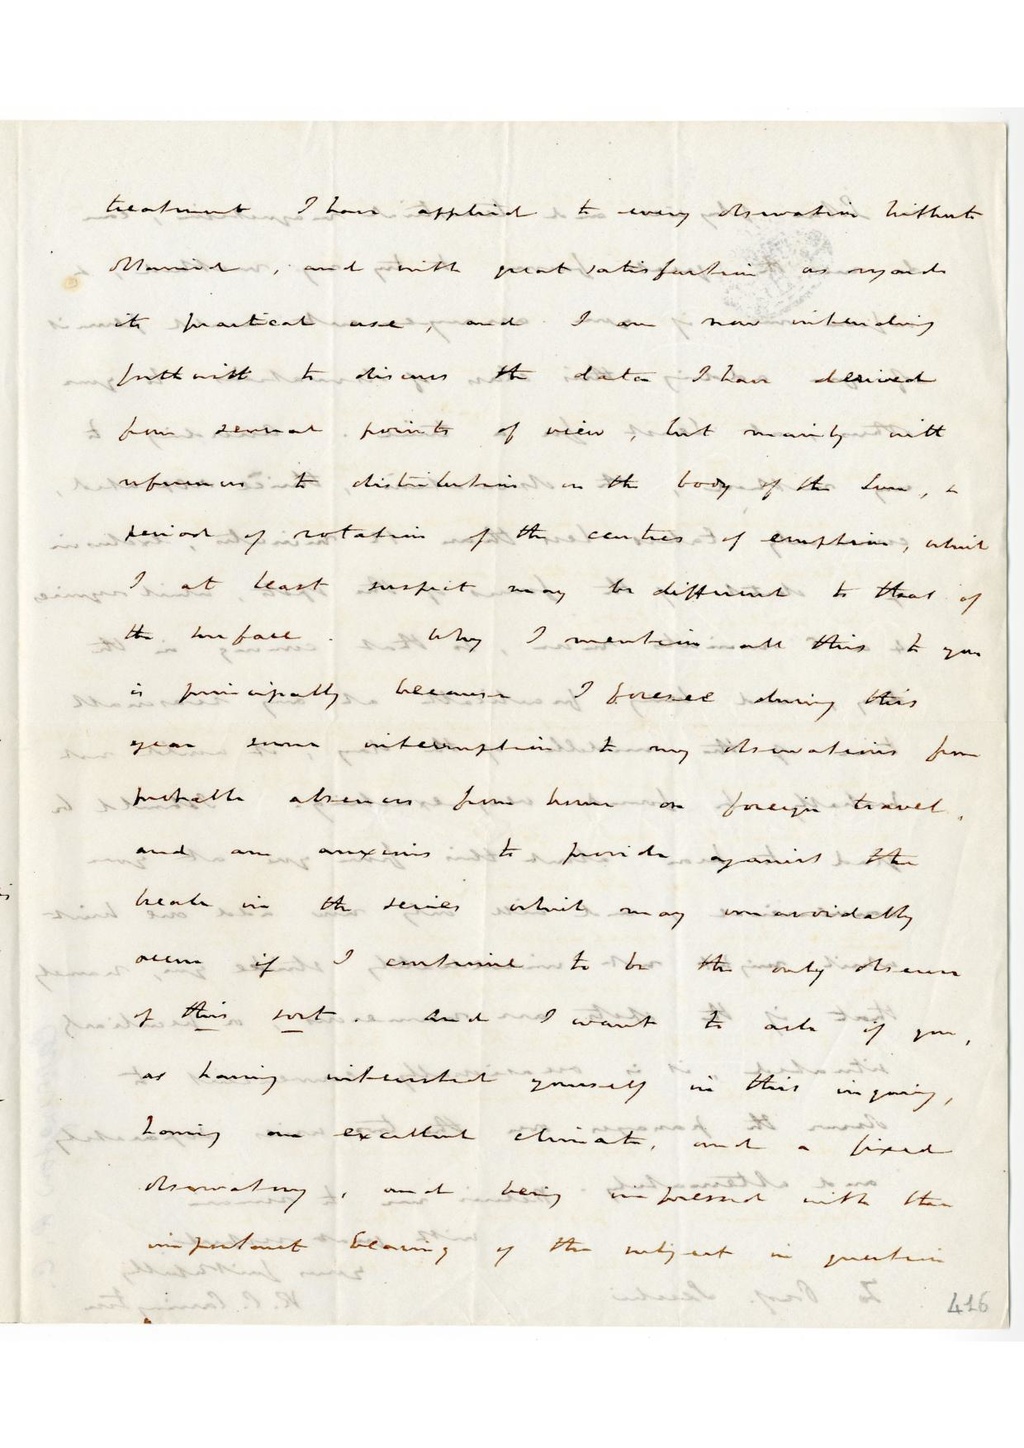 treatment I have applied to every observation hitherto
obtained, and with great satisfaction as regards
its practical use, and I am now intending
forthwith to discuss the data I have derived
from several points of view, but mainly with
reference to distribution on the body of the Sun, &
period of rotation of the centres of eruption, which
I at least suspect may be different to that of
the surface. Why I mention all this to you
is principally because I foresee during this
year some interruption to my observations from
probable absences from home on foreign travel,
and am anxious to provide against the
break in the series which may unavoidably
occur if I continue to be the only observer
of this sort. And I want to ask of you,
as having interested yourself in this inquiry,
having an excellent climate, and a fixed
observatory, and being impressed with the
important bearing of the subject in question
416